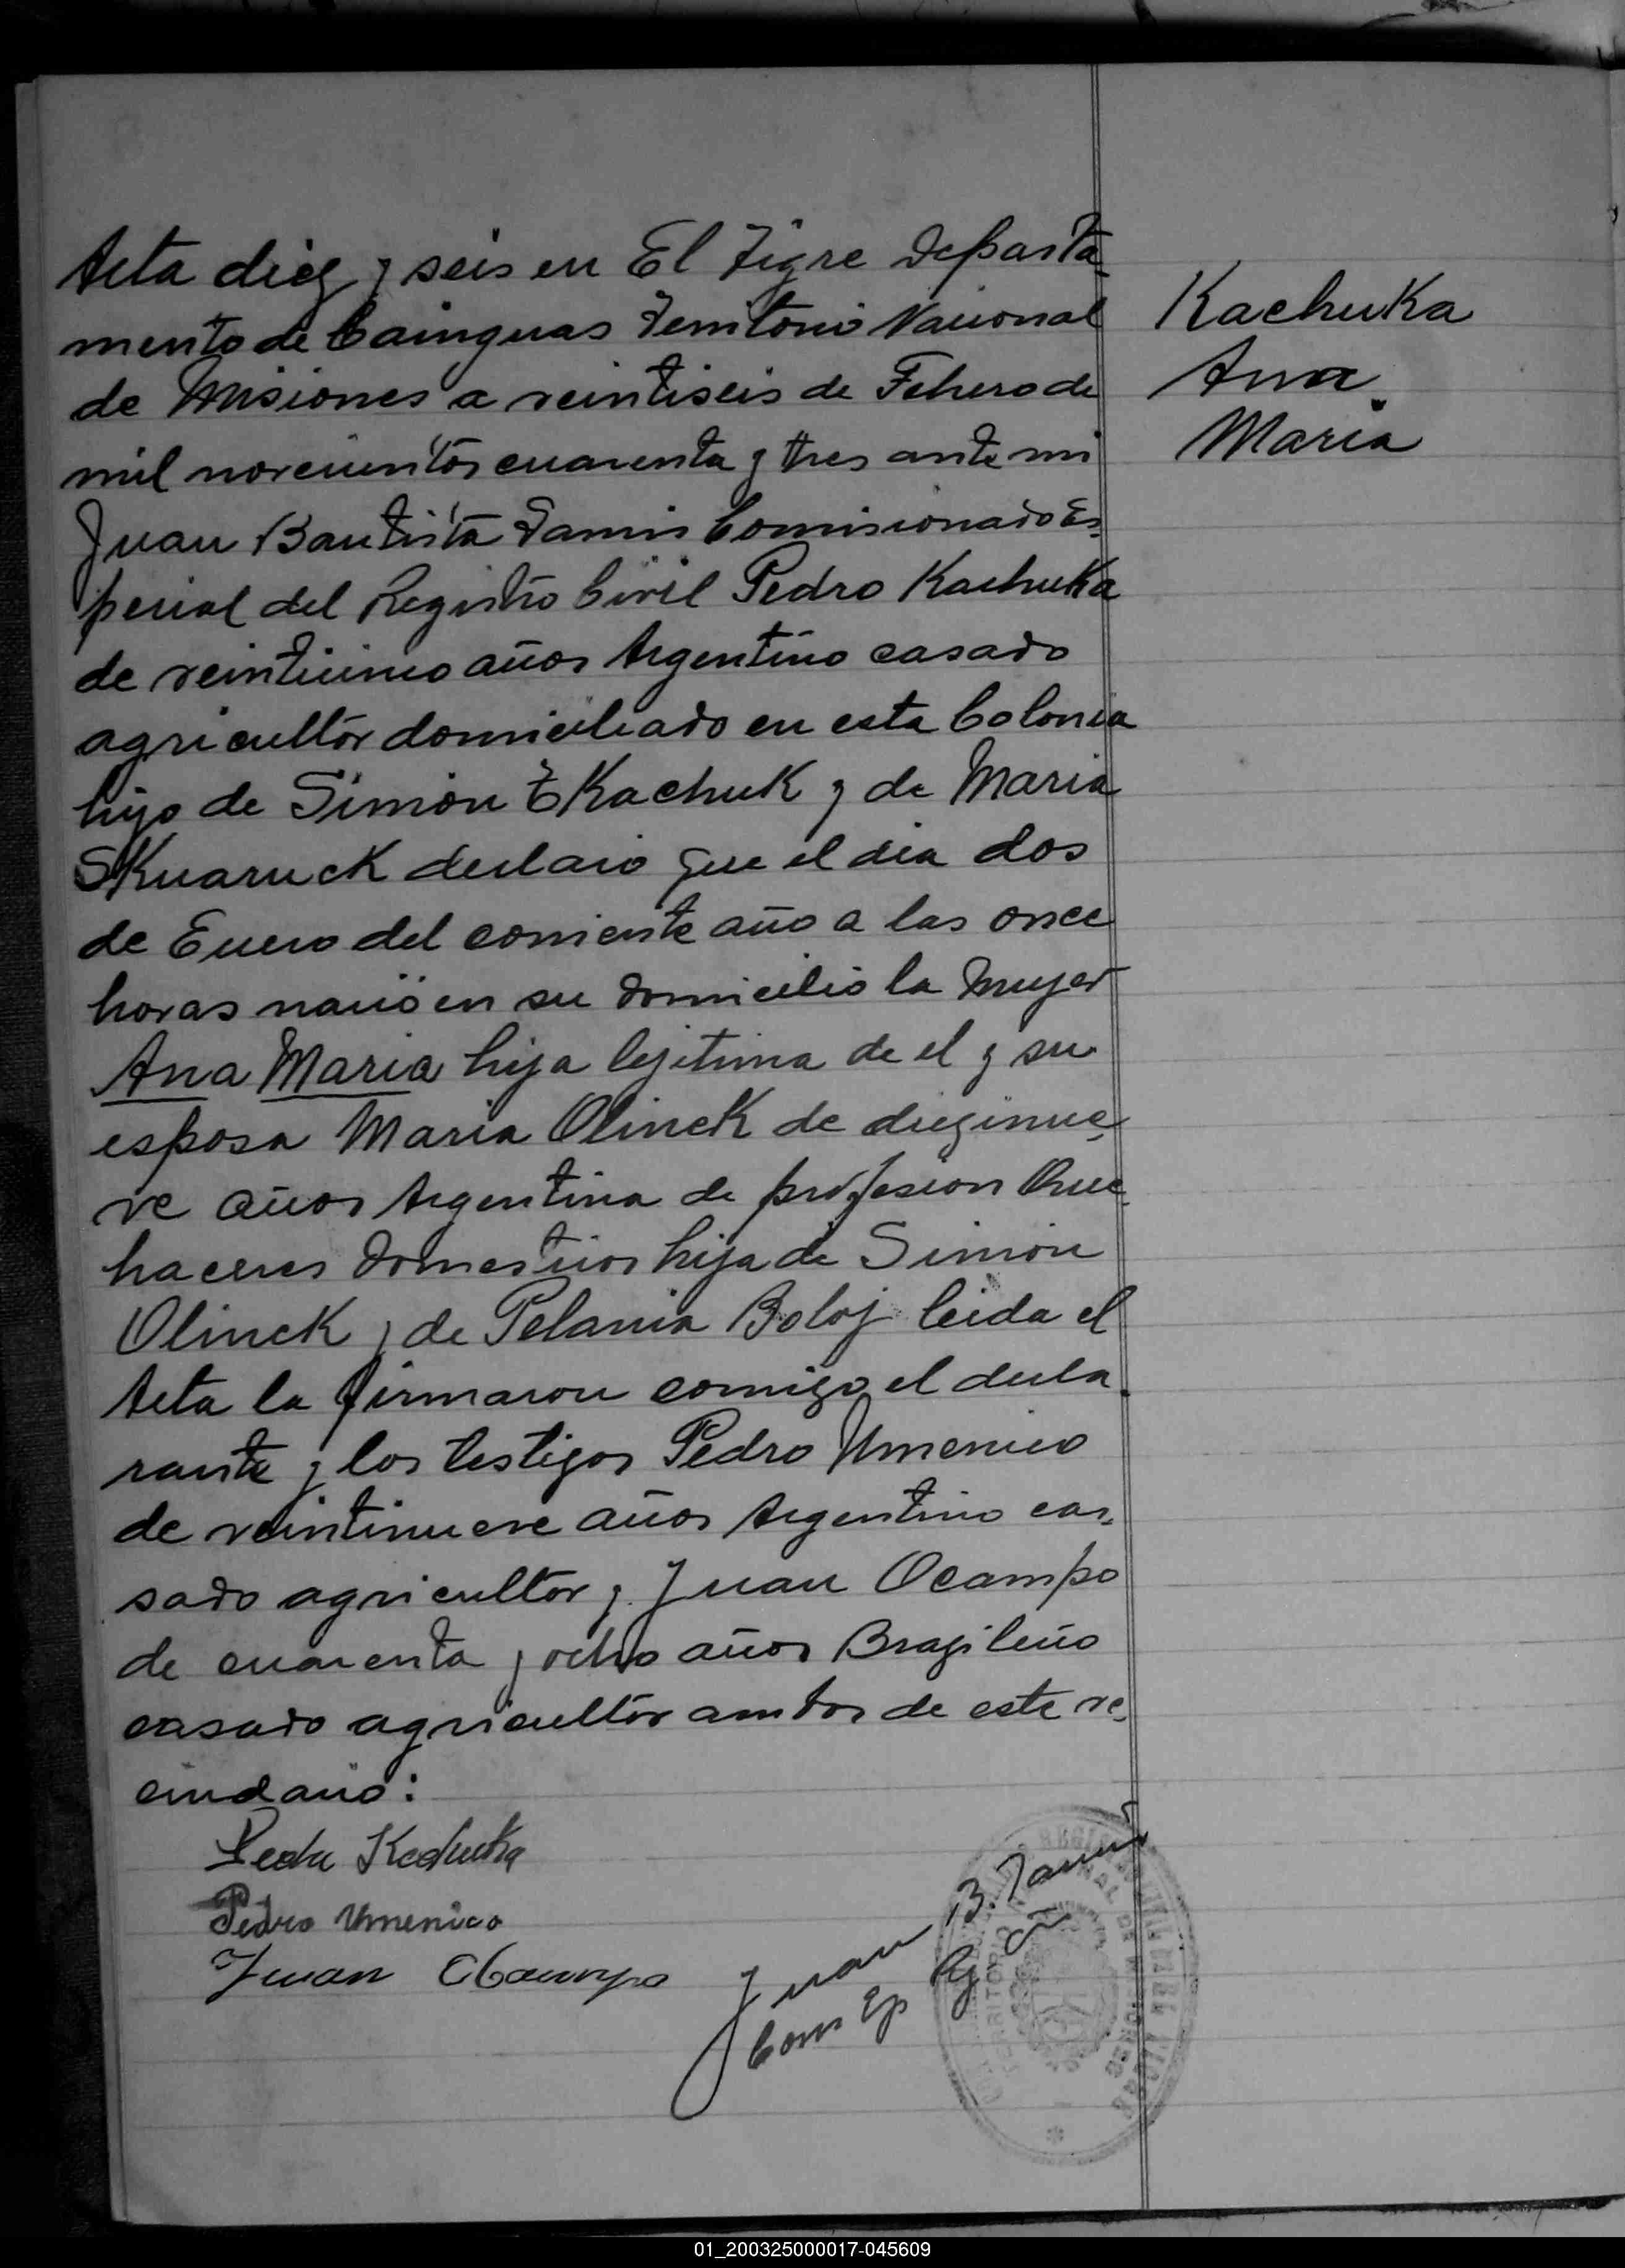 Acta diez y seis en El Tigre Departa-
mento de Cainguas Territorio Nacional
de Misiones a veintiseis de Febrero de
mil novecientos cuarenta y tres ante mi
Juan Bautista Comisionado Es-
pecial del Registro Civil Pedro Kachuka
de veinticinco años Argentino casado
agricultor domiciliado en esta Colonia
hijo de Simon Kachuk y de Maria
SKuaruck declaro que el dia dos
de Enero del corriente año a las once
horas nació en su domicilio la mujer
Ana Maria hija legitima de el y su
esposa Maria Olinek de diezinue-
ve años Argentina de profesion Que-
haceres Domesticos hija de Simon
Olinek y de Pelania Boloj leida el
Acta la firmaron comigo el decla-
rante y los testigos Pedro Umenico
de veintinueve años Argentino cas-
sado agricultor y Juan Ocampo
de cuarenta y ocho años Brazileño
casado agricultor ambos de este ve-
cindario:
Kachuka
Ana
Maria
Pedro Kachuka
Pedro Umenico
Juan Ocampo
Juan B.
Com Esp Rg Ci
01_200325000017-045609